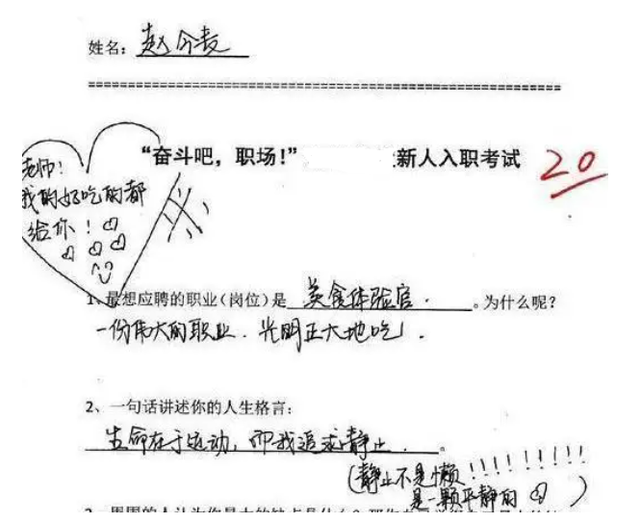 姓名：赵今麦
“奋斗吧，职场！” 新人入职考试 20
老师！
我的好吃的都
给你！
1、最想应聘的职业（岗位）是 美食体验官. 。为什么呢？
一份伟大的职业. 光明正大地吃！.
2、一句话讲述你的人生格言：
生命在于运动，而我追求静止. 。
（静止不是懒！！！！！！！！
是一颗平静的 ）